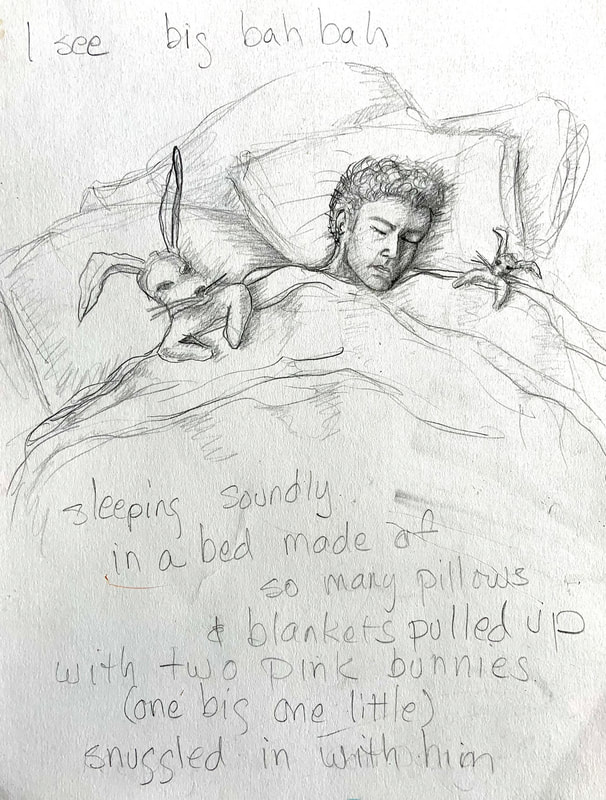 I see big bah bah
sleeping soundly.
in a bed made of
so many pillows
& blankets pulled up
with two pink bunnies.
(one big one little)
snuggled in with him